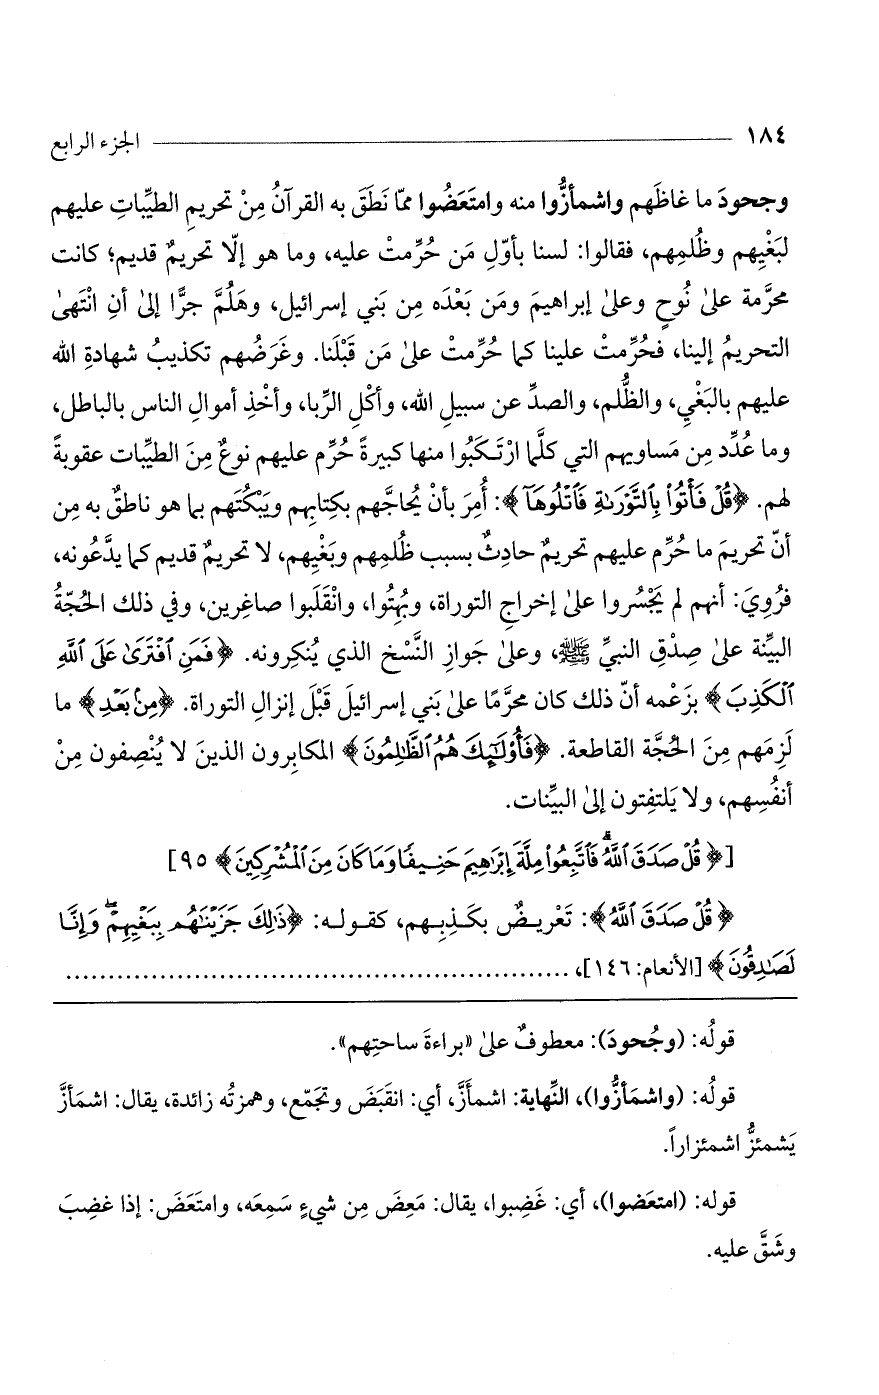 ١٨٤ ــــــــــ الجزء الرابع
وجحودَ ما غاظَهم واشمأزُّوا منه وامتَعَضُوا ممّا نَطَقَ به القرآنُ مِنْ تحريمِ الطيِّباتِ عليهم
لبَغْيِهم وظُلمِهم، فقالوا: لسنا بأوّلِ مَن حُرِّمتْ عليه، وما هو إلّا تحريمٌ قديم؛ كانت
محرَّمة علىٰ نُوحٍ وعلىٰ إبراهيمَ ومَن بَعْدَه مِن بَني إسرائيل، وهَلُمَّ جرًّا إلىٰ أنِ انْتَهىٰ
التحريمُ إلينا، فحُرِّمتْ علينا كما حُرِّمتْ علىٰ مَن قَبْلَنا. وغَرَضُهم تكذيبُ شهادةِ الله
عليهم بالبَغْيِ، والظُّلم، والصدِّ عن سبيلِ الله، وأكْلِ الرِّبا، وأخْذِ أموالِ الناس بالباطل،
وما عُدِّد مِن مَساويهم التي كلَّما ارْتَكَبُوا منها كبيرةً حُرِّم عليهم نوعٌ مِنَ الطيِّبات عقوبةً
لهم. ﴿قُلْ فَأْتُوا۟ بِٱلتَّوْرَىٰةِ فَٱتْلُوهَآ﴾: أُمِرَ بأنْ يُحاجَّهم بكِتابِهم ويَبْكُتَهم بما هو ناطقٌ به مِن
أنّ تحريمَ ما حُرِّم عليهم تحريمٌ حادِثٌ بسبب ظُلمِهم وبَغْيِهم، لا تحريمٌ قديم كما يدَّعُونه،
فرُوِيَ: أنهم لم يَجْسُروا علىٰ إخراجِ التوراة، وبُهِتُوا، وانْقَلَبوا صاغِرين، وفي ذلك الحُجّةُ
البيِّنة علىٰ صِدْقِ النبيِّ ﷺ، وعلىٰ جَوازِ النَّسْخ الذي يُنكِرونه. ﴿فَمَنِ ٱفْتَرَىٰ عَلَى ٱللَّهِ
ٱلْكَذِبَ﴾ بزَعْمه أنّ ذلك كان محرَّمًا علىٰ بَني إسرائيلَ قَبْلَ إنزالِ التوراة. ﴿مِنۢ بَعْدِ﴾ ما
لَزِمَهم مِنَ الحُجَّة القاطعة. ﴿فَأُو۟لَٰٓئِكَ هُمُ ٱلظَّٰلِمُونَ﴾ المكابِرون الذينَ لا يُنْصِفون مِنْ
أنفُسِهم، ولا يَلتفِتون إلىٰ البيِّنات.
[﴿قُلْ صَدَقَ ٱللَّهُ ۗ فَٱتَّبِعُوا۟ مِلَّةَ إِبْرَٰهِيمَ حَنِيفًا وَمَا كَانَ مِنَ ٱلْمُشْرِكِينَ﴾ ٩٥]
﴿قُلْ صَدَقَ ٱللَّهُ﴾: تَعْريضٌ بكَـذِبِـهم، كقولـه: ﴿ذَٰلِكَ جَزَيْنَٰهُم بِبَغْيِهِمْ ۖ وَإِنَّا
لَصَٰدِقُونَ﴾ [الأنعام: ١٤٦]، ......................................................
قولُه: (وجُحودَ): معطوفٌ علىٰ «براءةَ ساحتِهم».
قولُه: (واشمَأزُّوا)، النِّهاية: اشمأَزَّ، أي: انقَبَضَ وتجَمّع، وهمزتُه زائدة، يقال: اشمَأزَّ
يَشمئزُّ اشمئزازاً.
قوله: (امتعَضوا)، أي: غَضِبوا، يقال: مَعِضَ مِن شيءٍ سَمِعَه، وامتَعَضَ: إذا غضِبَ
وشَقَّ عليه.